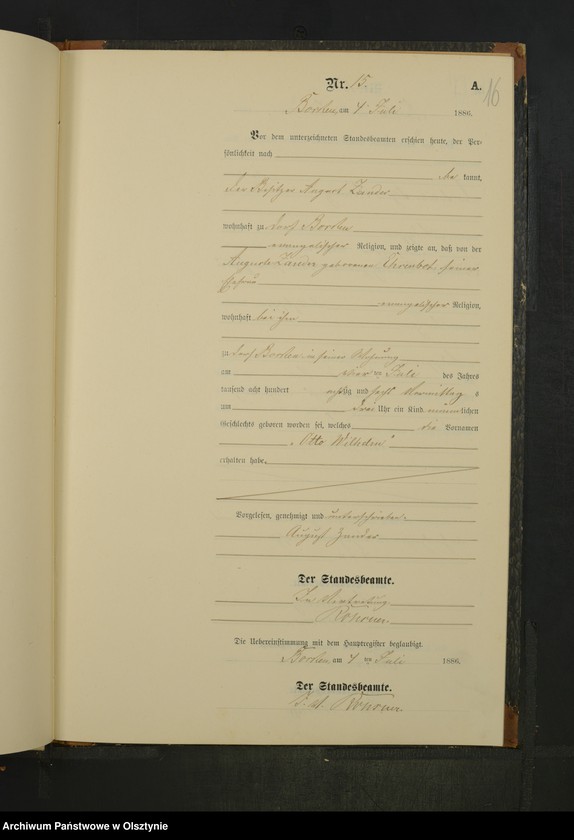 Nr. 15. A. 16
am 4 Juli 1886.
Vor dem unterzeichneten Standesbeamten erschien heute, der Per-
sönlichkeit nach
be kannt,
der Besitzer August Zander
wohnhaft zu Dorf
evangelischer Religion, und zeigte an, daß von der
Auguste Zander geborenen seiner
Ehefrau
evangelischer Religion,
wohnhaft bei ihm
zu Dorf in seiner Wohnung
am ten Juli des Jahres
tausend acht hundert achtzig und sechs Vormittags
um drei Uhr ein Kind männlichen
Geschlechts geboren worden sei, welches die Vornamen
„Otto Wilhelm“
erhalten habe.
Vorgelesen, genehmigt und unterschrieben
August Zander
Der Standesbeamte.
In Vertretung
Die Uebereinstimmung mit dem Hauptregister beglaubigt.
am 4 ten Juli 1886.
Der Standesbeamte.
Archiwum Państwowe w Olsztynie